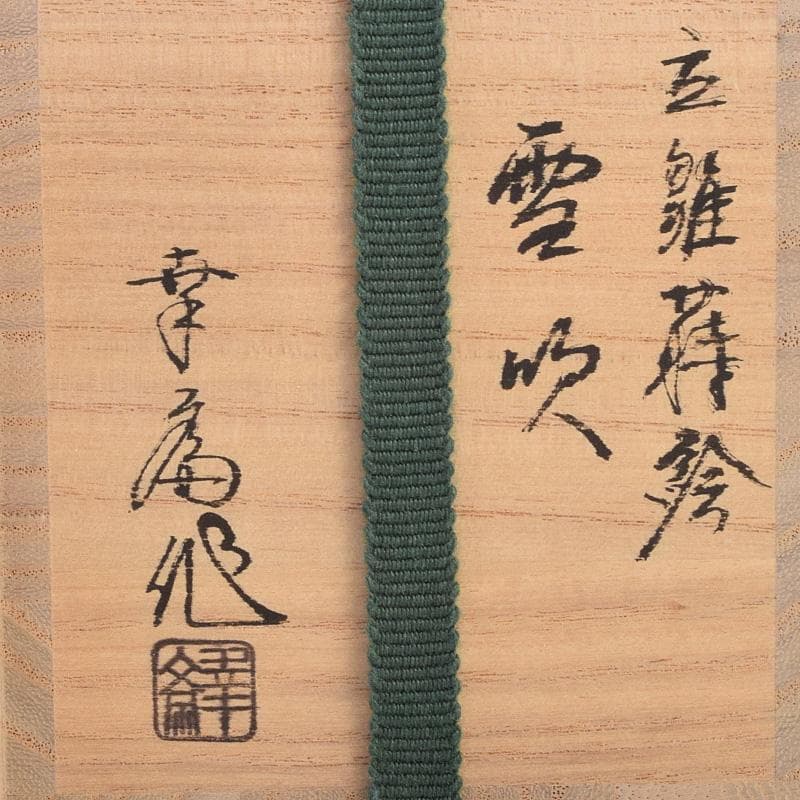 立雛蒔絵
雪吹
幸斎作